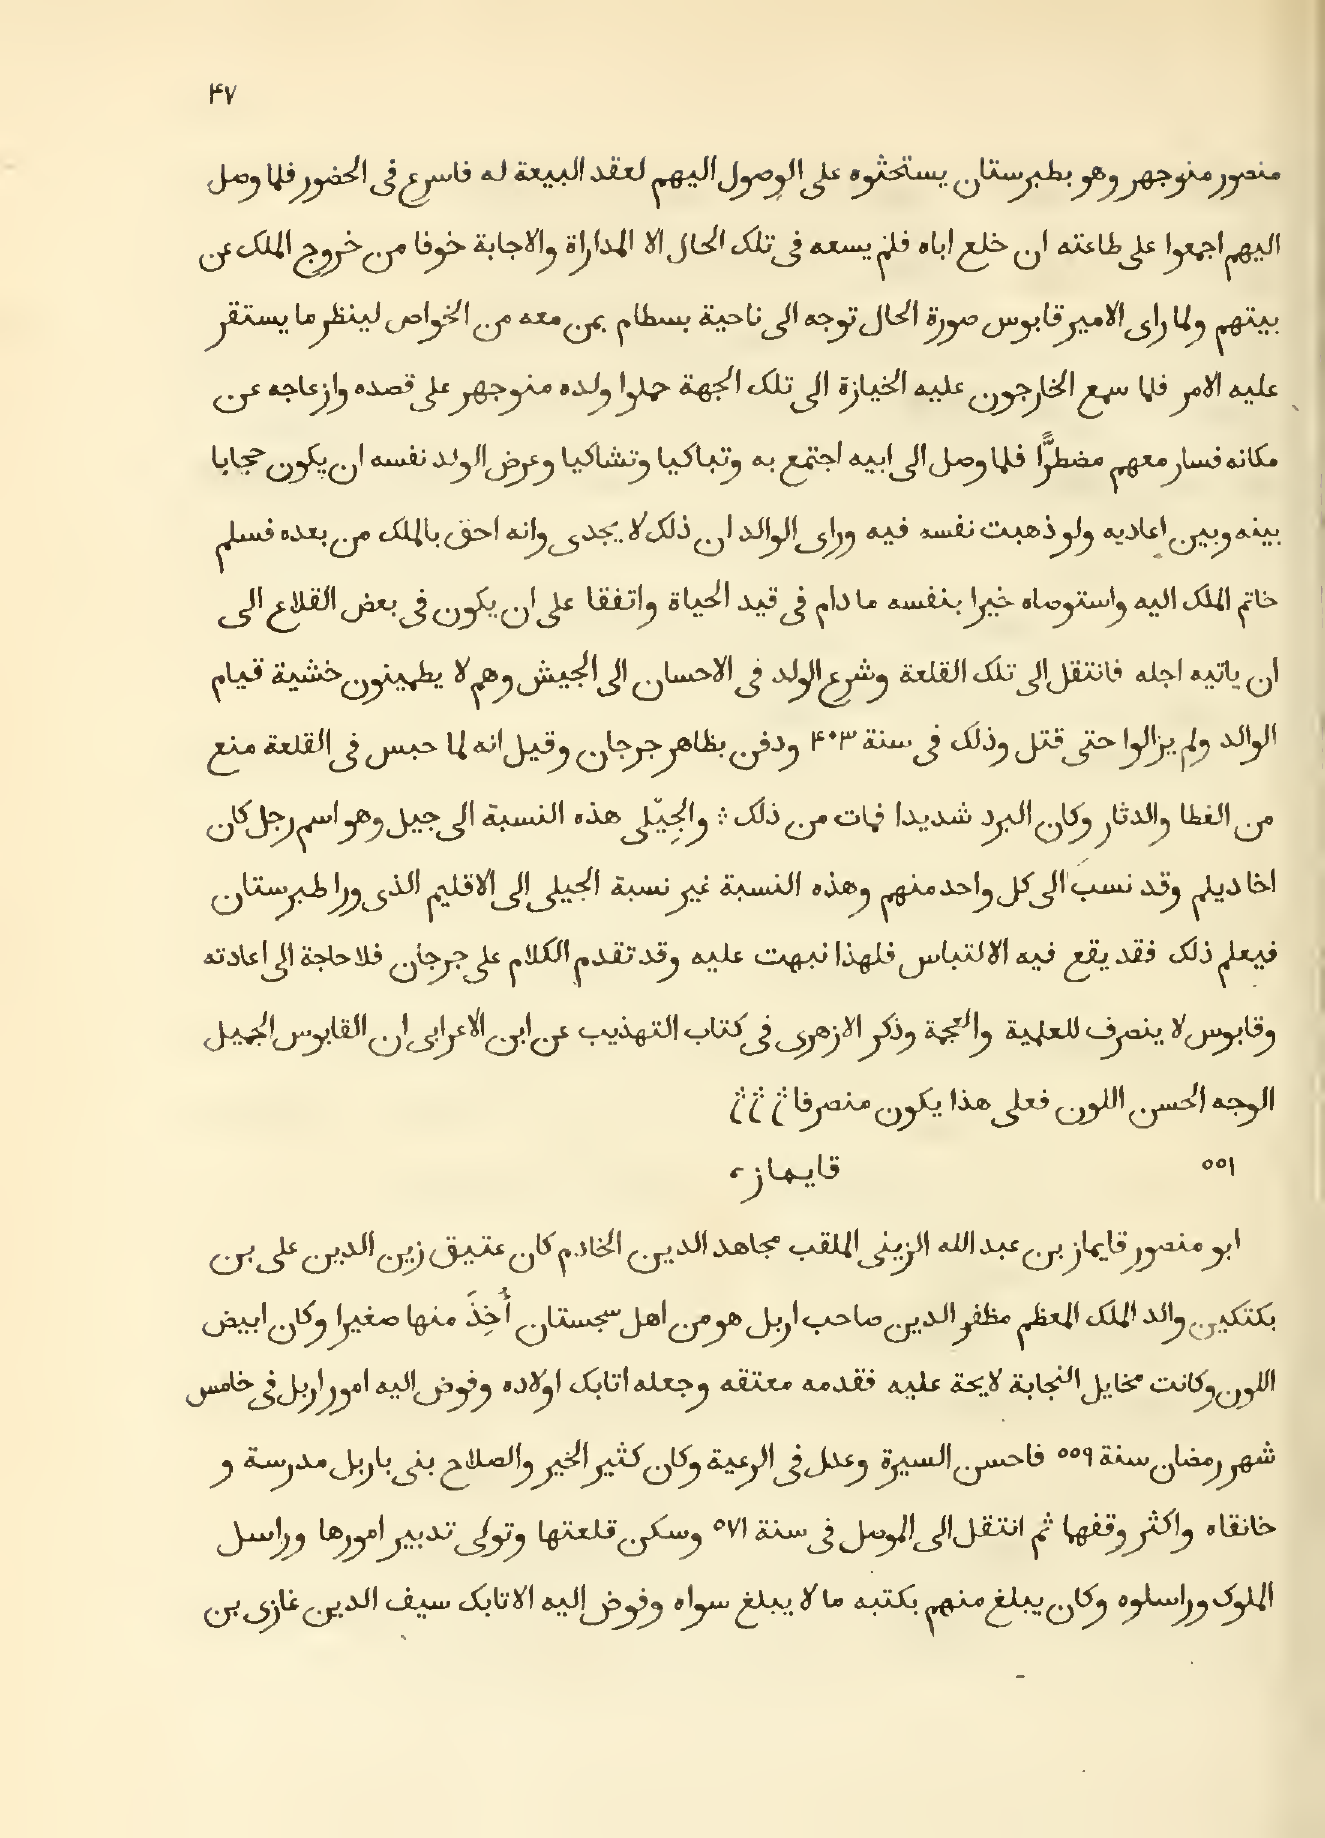 ۴۷
منصور منوجهر وهو بطبرستان يستحثوه على الوصول اليهم لعقد البيعة له فاسرع فى الحضور فلما وصل
اليهم اجمعوا على طاعته ان خلع اباه فلم يسعه فى تلك الحال الا المداراة والاجابة خوفا من خروج الملك عن
بيتهم ولما راى الامير قابوس صورة الحال توجه الى ناحية بسطام بمن معه من الخواص لينظر ما يستقر
عليه الامر فلما سمع الخارجون عليه الخيازة الى تلك الجهة حملوا ولده منوجهر على قصده وازعاجه عن
مكانه فسار معهم مضطرًّا فلما وصل الى ابيه اجتمع به وتباكيا وتشاكيا وعرض الولد نفسه ان يكون حجابا
بينه وبين اعاديه ولو ذهبت نفسه فيه وراى الوالد ان ذلك لا يجدى وانه احق بالملك من بعده فسلم
خاتم الملك اليه واستوصاه خيرا بنفسه ما دام فى قيد الحياة واتفقا على ان يكون فى بعض القلاع الى
ان ياتيه اجله فانتقل الى تلك القلعة وشرع الولد فى الاحسان الى الجيش وهم لا يطمينون خشية قيام
الوالد ولم يزالوا حتى قتل وذلك فى سنة ۴۰۳ ودفن بظاهر جرجان وقيل انه لما حبس فى القلعة منع
من الغطا والدثار وكان البرد شديدا فمات من ذلك ؞ والجِيْلى هذه النسبة الى جيل وهو اسم رجل كان
اخا ديلم وقد نسب الى كل واحد منهم وهذه النسبة غير نسبة الجيلى الى الاقليم الذى ورا طبرستان
فيعلم ذلك فقد يقع فيه الالتباس فلهذا نبهت عليه وقد تقدم الكلام على جرجان فلا حاجة الى اعادته
وقابوس لا ينصرف للعلمية والعجمة وذكر الازهرى فى كتاب التهذيب عن ابن الاعرابى ان القابوس الجميل
الوجه الحسن اللون فعلى هذا يكون منصرفا ؞ ؞ ؞
٥٥١ قايماز
ابو منصور قايماز بن عبد الله الزينى الملقب مجاهد الدين الخادم كان عتيق زين الدين على بن
بكتكين والد الملك المعظم مظفر الدين صاحب اربل هو من اهل سجستان أُخِذَ منها صغيرا وكان ابيض
اللون وكانت مخايل النجابة لايحة عليه فقدمه معتقه وجعله اتابك اولاده وفوض اليه امور اربل فى خامس
شهر رمضان سنة ٥٥٩ فاحسن السيرة وعدل فى الرعية وكان كثير الخير والصلاح بنى باربل مدرسة و
خانقاه واكثر وقفهما ثم انتقل الى الموصل فى سنة ٥٧١ وسكن قلعتها وتولى تدبير امورها وراسل
الملوك وراسلوه وكان يبلغ منهم بكتبه ما لا يبلغ سواه وفوض اليه الاتابك سيف الدين غازى بن